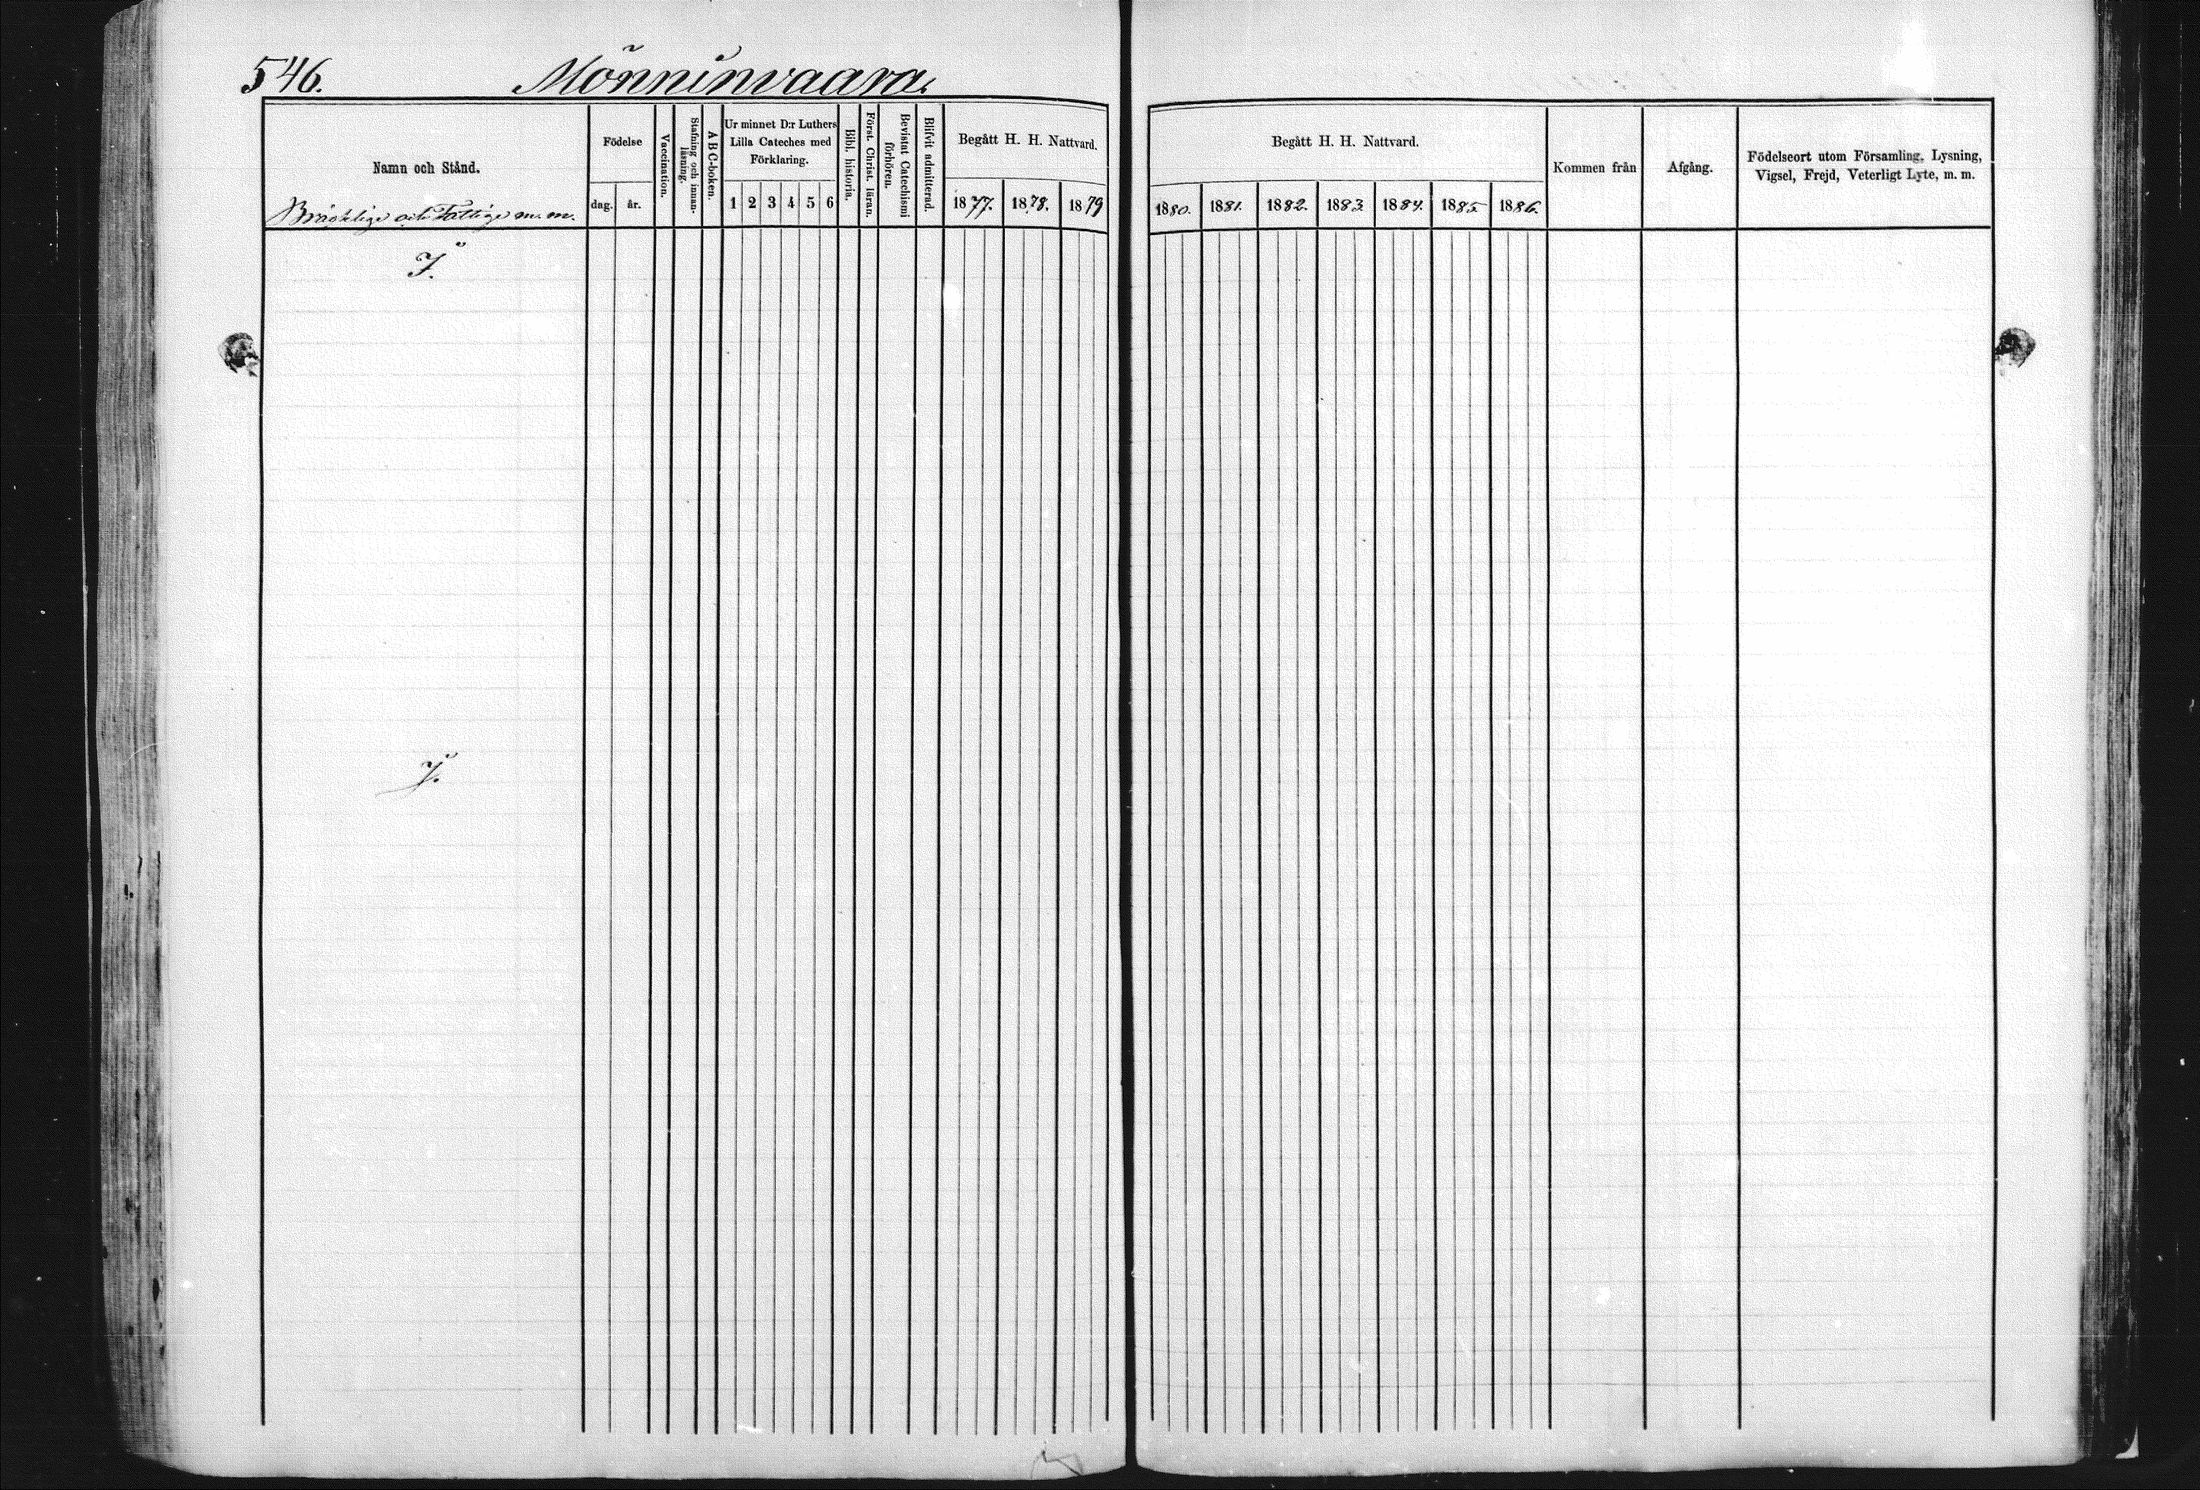 546. Mönninvaara.
Namn och Stånd.
Bräcklige och Fattige m. m.
Födelse
dag. år.
Vaccination.
Stafning och innanläsning.
A B C-boken.
Ur minnet D:r Luthers
Lilla Cateches med
Förklaring.
1 2 3 4 5 6
Bibl. historia.
Först. Christ. läran.
Bevistat Catechismi
förhören.
Blifvit admitterad.
Begått H. H. Nattvard.
1877. 1878. 1879
Begått H. H. Nattvard.
1880. 1881. 1882. 1883. 1884. 1885 1886.
Kommen från
Afgång.
Födelseort utom Församling, Lysning,
Vigsel, Frejd, Veterligt Lyte, m. m.
J.
J.